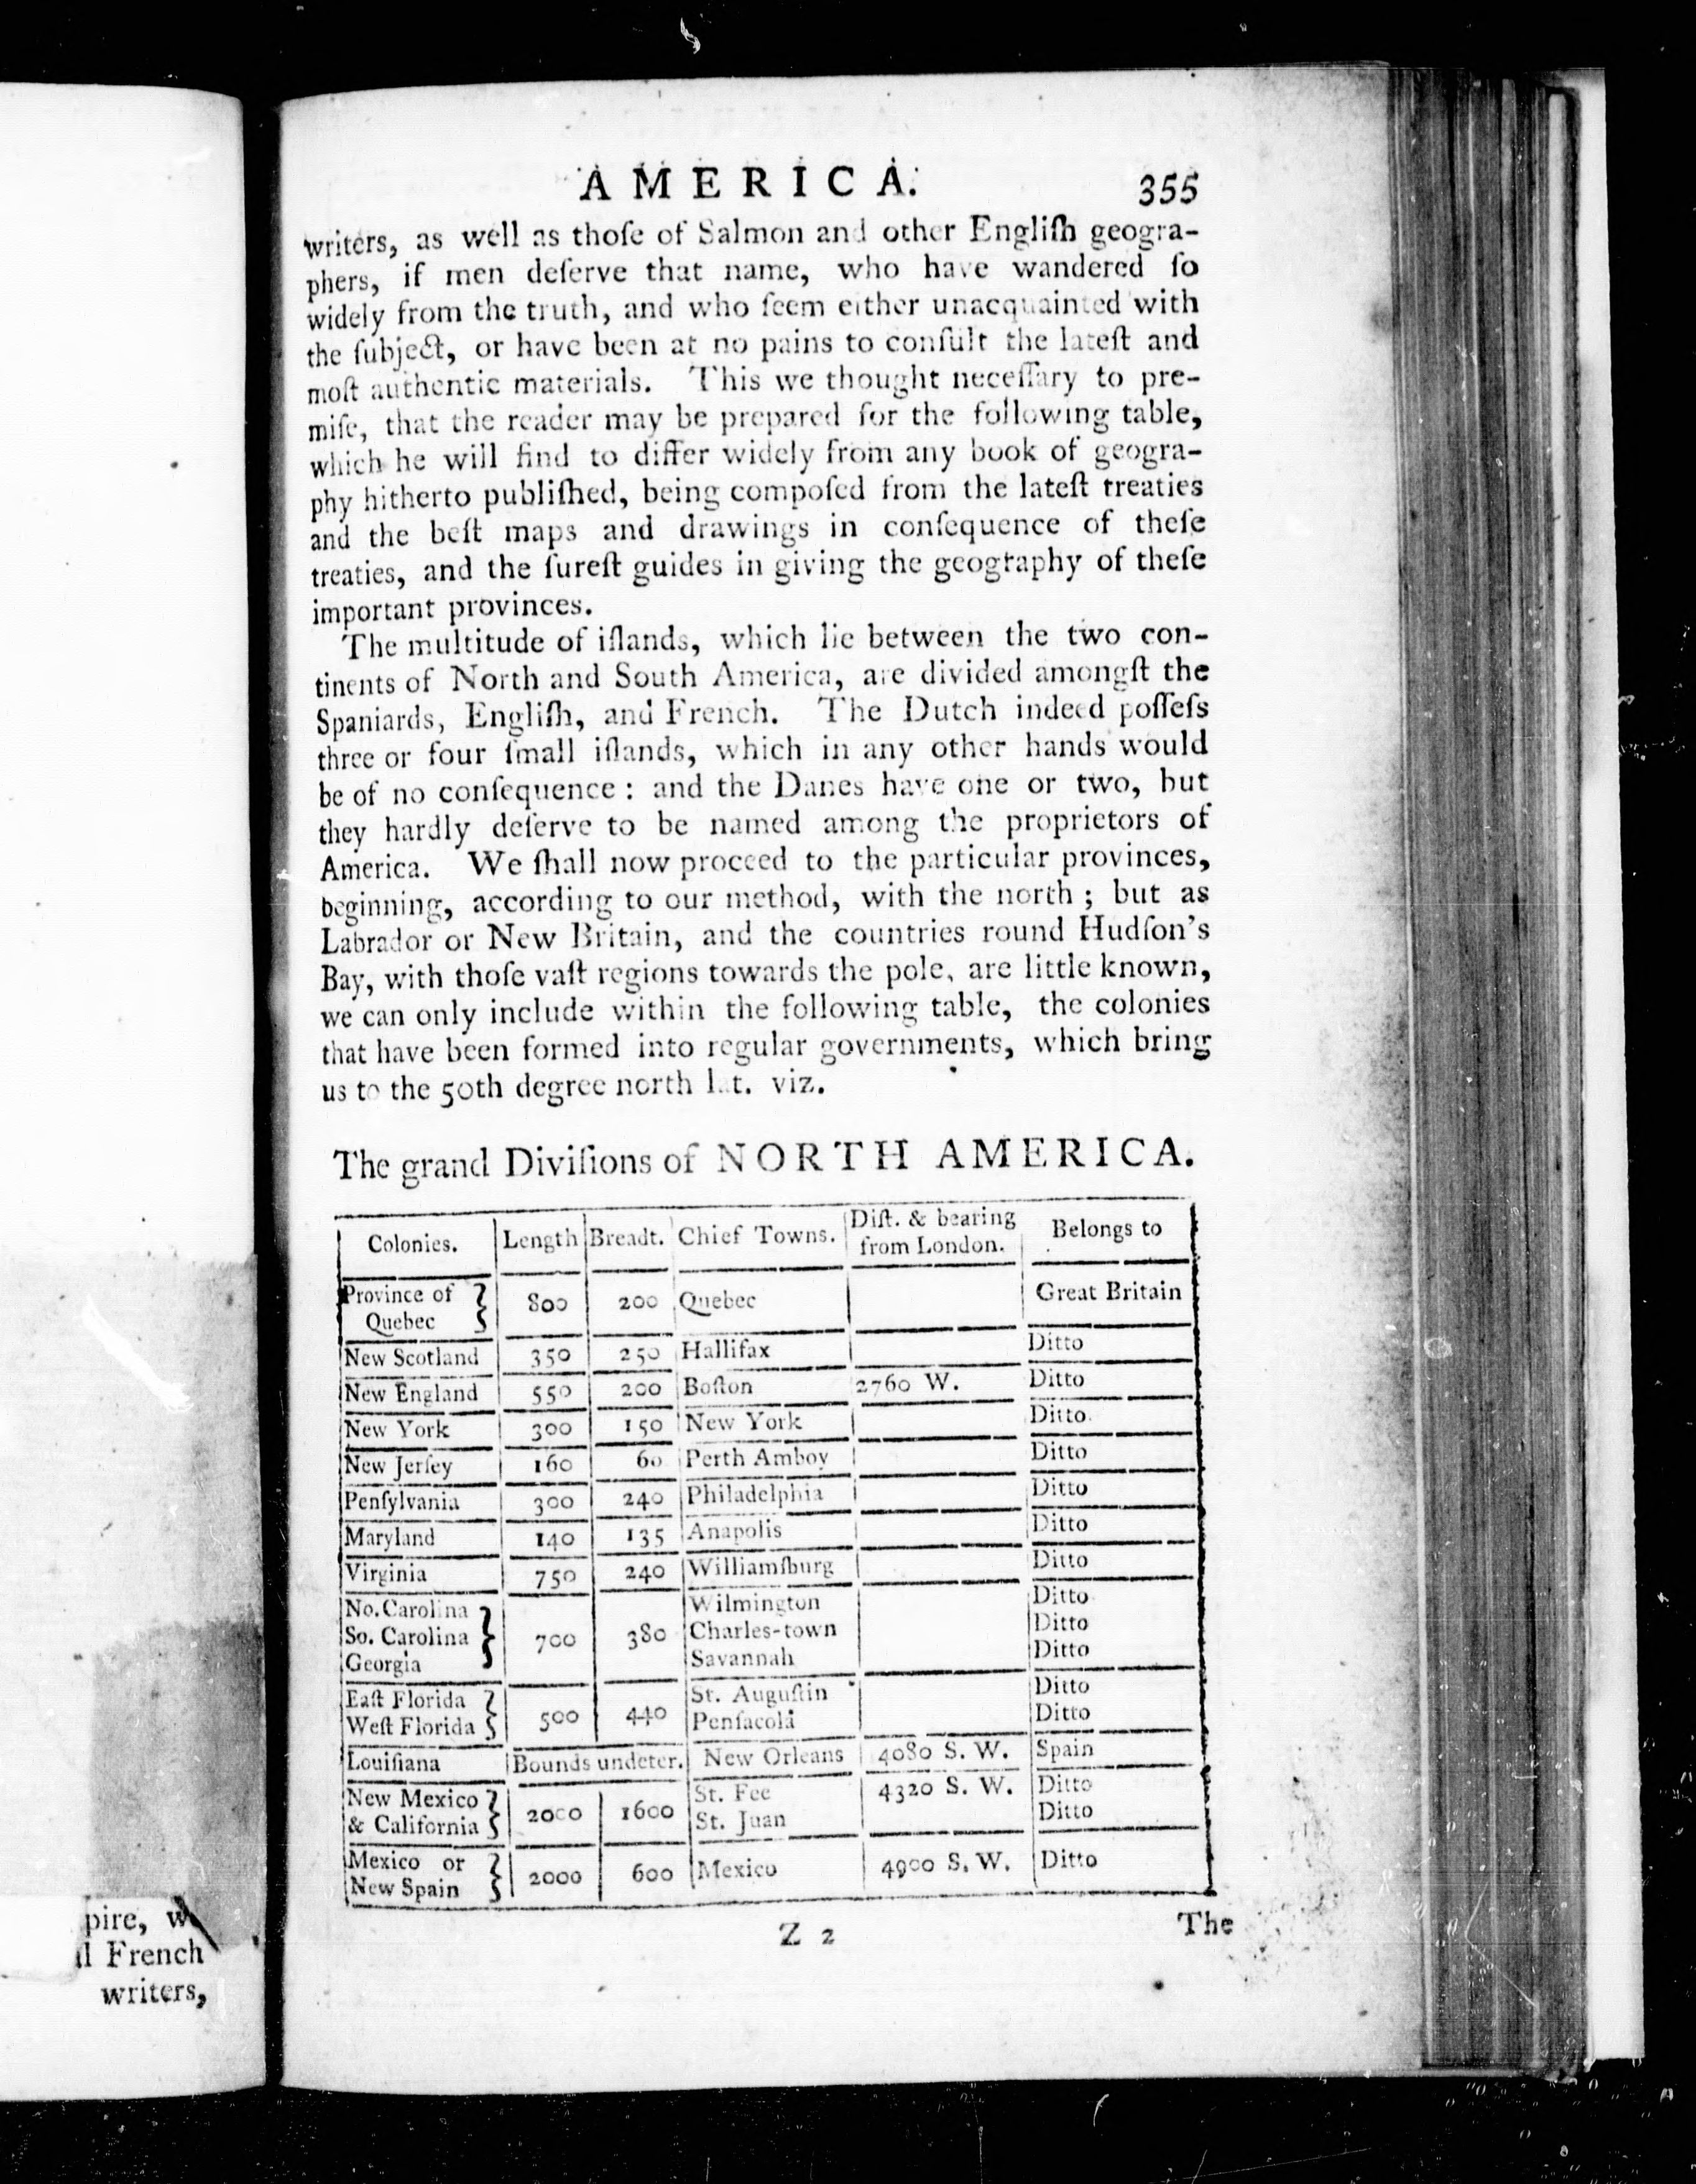 AMERICA.
355
writers, as well as thoſe of Salmon and other Engliſh geogra-
phers, if men deſerve that name, who have wandered ſo
widely from the truth, and who ſeem either unacquainted with
the ſubject, or have been at no pains to conſult the lateſt and
moſt authentic materials. This we thought neceſſary to pre-
miſe, that the reader may be prepared for the following table,
which he will find to differ widely from any book of geogra-
phy hitherto publiſhed, being compoſed from the lateſt treaties
and the beſt maps and drawings in conſequence of theſe
treaties, and the ſureſt guides in giving the geography of theſe
important provinces.
The multitude of iſlands, which lie between the two con-
tinents of North and South America, are divided amongſt the
Spaniards, Engliſh, and French. The Dutch indeed poſſeſs
three or four ſmall iſlands, which in any other hands would
be of no conſequence : and the Danes have one or two, but
they hardly deſerve to be named among the proprietors of
America. We ſhall now proceed to the particular provinces,
beginning, according to our method, with the north ; but as
Labrador or New Britain, and the countries round Hudſon's
Bay, with thoſe vaſt regions towards the pole, are little known,
we can only include within the following table, the colonies
that have been formed into regular governments, which bring
us to the 50th degree north lat. viz.
The grand Diviſions of NORTH AMERICA.
Colonies. Length Breadt. Chief Towns. Diſt. & bearing from London. Belongs to
Province of Quebec 800 200 Quebec Great Britain
New Scotland 350 250 Hallifax Ditto
New England 550 200 Boſton 2760 W. Ditto
New York 300 150 New York Ditto
New Jerſey 160 60 Perth Amboy Ditto
Penſylvania 300 240 Philadelphia Ditto
Maryland 140 135 Anapolis Ditto
Virginia 750 240 Williamſburg Ditto
No. Carolina Wilmington Ditto
So. Carolina 700 380 Charles-town Ditto
Georgia Savannah Ditto
Eaſt Florida St. Auguſtin Ditto
Weſt Florida 500 440 Penſacola Ditto
Louiſiana Bounds undeter. New Orleans 4080 S. W. Spain
New Mexico St. Fee 4320 S. W. Ditto
& California 2000 1600 St. Juan Ditto
Mexico or New Spain 2000 600 Mexico 4900 S. W. Ditto
Z 2
The
pire, we
French
writers,